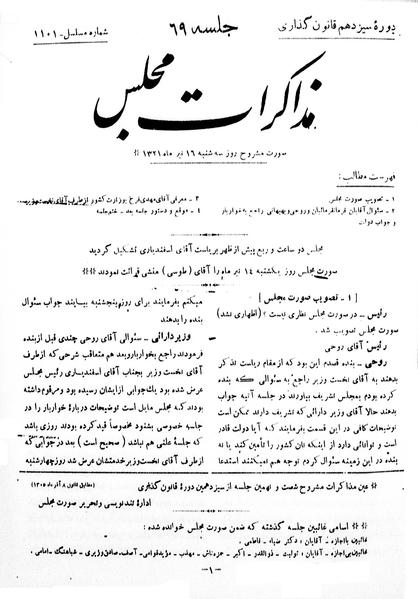 دورهٔ سیزدهم قانون گذاری
جلسه ۶۹
شماره مسلسل - ۱۱۰۱
مذاکرات مجلس
صورت مشروح روز سه شنبه ۱۶ تیر ماه ۱۳۲۱
فهرست مطالب:
۱ - تصویب صورت مجلس
۲ - سئوال آقایان فرمانفرمائیان و روحی و بهبهانی راجع به خواربار و جواب دولت
۳ - معرفی آقای مهدی فرخ بوزارت کشور از طرف آقای نخست وزیر
۴ - موقع و دستور جلسه بعد - ختم جلسه
مجلس دو ساعت و ربع پیش از ظهر بریاست آقای اسفندیاری تشکیل گردید
صورت مجلس روز یکشنبه ۱۴ تیر ماه را آقای (طوسی) منشی قرائت نمودند
[۱ - تصویب صورت مجلس]
رئیس - در صورت مجلس نظری نیست؟ (اظهاری نشد)
صورت مجلس تصویب شد.
رئیس آقای روحی
روحی - بنده قصدم این بود که از مقام ریاست تذکر
بدهند به آقای نخست وزیر راجع به سئوالی که بنده
کرده بودم بمجلس تشریف بیاورند در جلسه آتیه جواب
بدهند حالا آقای وزیر دارائی که تشریف دارند ممکن است
توضیحات کافی در این قسمت بفرمایند که آیا دولت قادر
است و توانائی دارد از اینکه نان کشور را تأمین کند یا نه
بنده در این زمینه سئوال کردم توجه هم میکنند استدعا
میکنم بفرمایند برای روز پنجشنبه بیایند جواب سئوال
بنده را بدهند
وزیر دارائی - سئوالی آقای روحی چندی قبل از بنده
فرمودند راجع بخواربار و بعد هم متعاقب شرحی که از طرف
آقای نخست وزیر بجناب آقای اسفندیاری رئیس مجلس
عرض شده بود یک جوابی از ایشان رسیده بود و مرقوم داشته
بودند که مجلس مایل است توضیحات دربارهٔ خواربار را در
جلسه خصوصی بشنود مخصوصاً قید کرده بودند روزی باشد
که جلسهٔ علنی هم نباشد (صحیح است) بعد در جواب که
از طرف آقای نخست وزیر خدمتشان عرض شد روز چهارشنبه
عین مذاکرات مشروح شصت و نهمین جلسه از سیزدهمین دورهٔ قانون گذاری
(مطابق قانون ۸ آذر ماه ۱۳۰۵)
ادارهٔ تندنویسی و تحریر صورت مجلس
اسامی غائبین جلسه گذشته که ضمن صورت مجلس خوانده شده:
غائبین با اجازه: آقایان: دکتر ضیاء - فاطمی.
غائبین بی اجازه - آقایان: تولیت - ذوالقدر - اکبر - حمزه تاش - مهذب - مؤید قوامی - آصف - صادق وزیری - شباهنگ - امامی.
-۱-